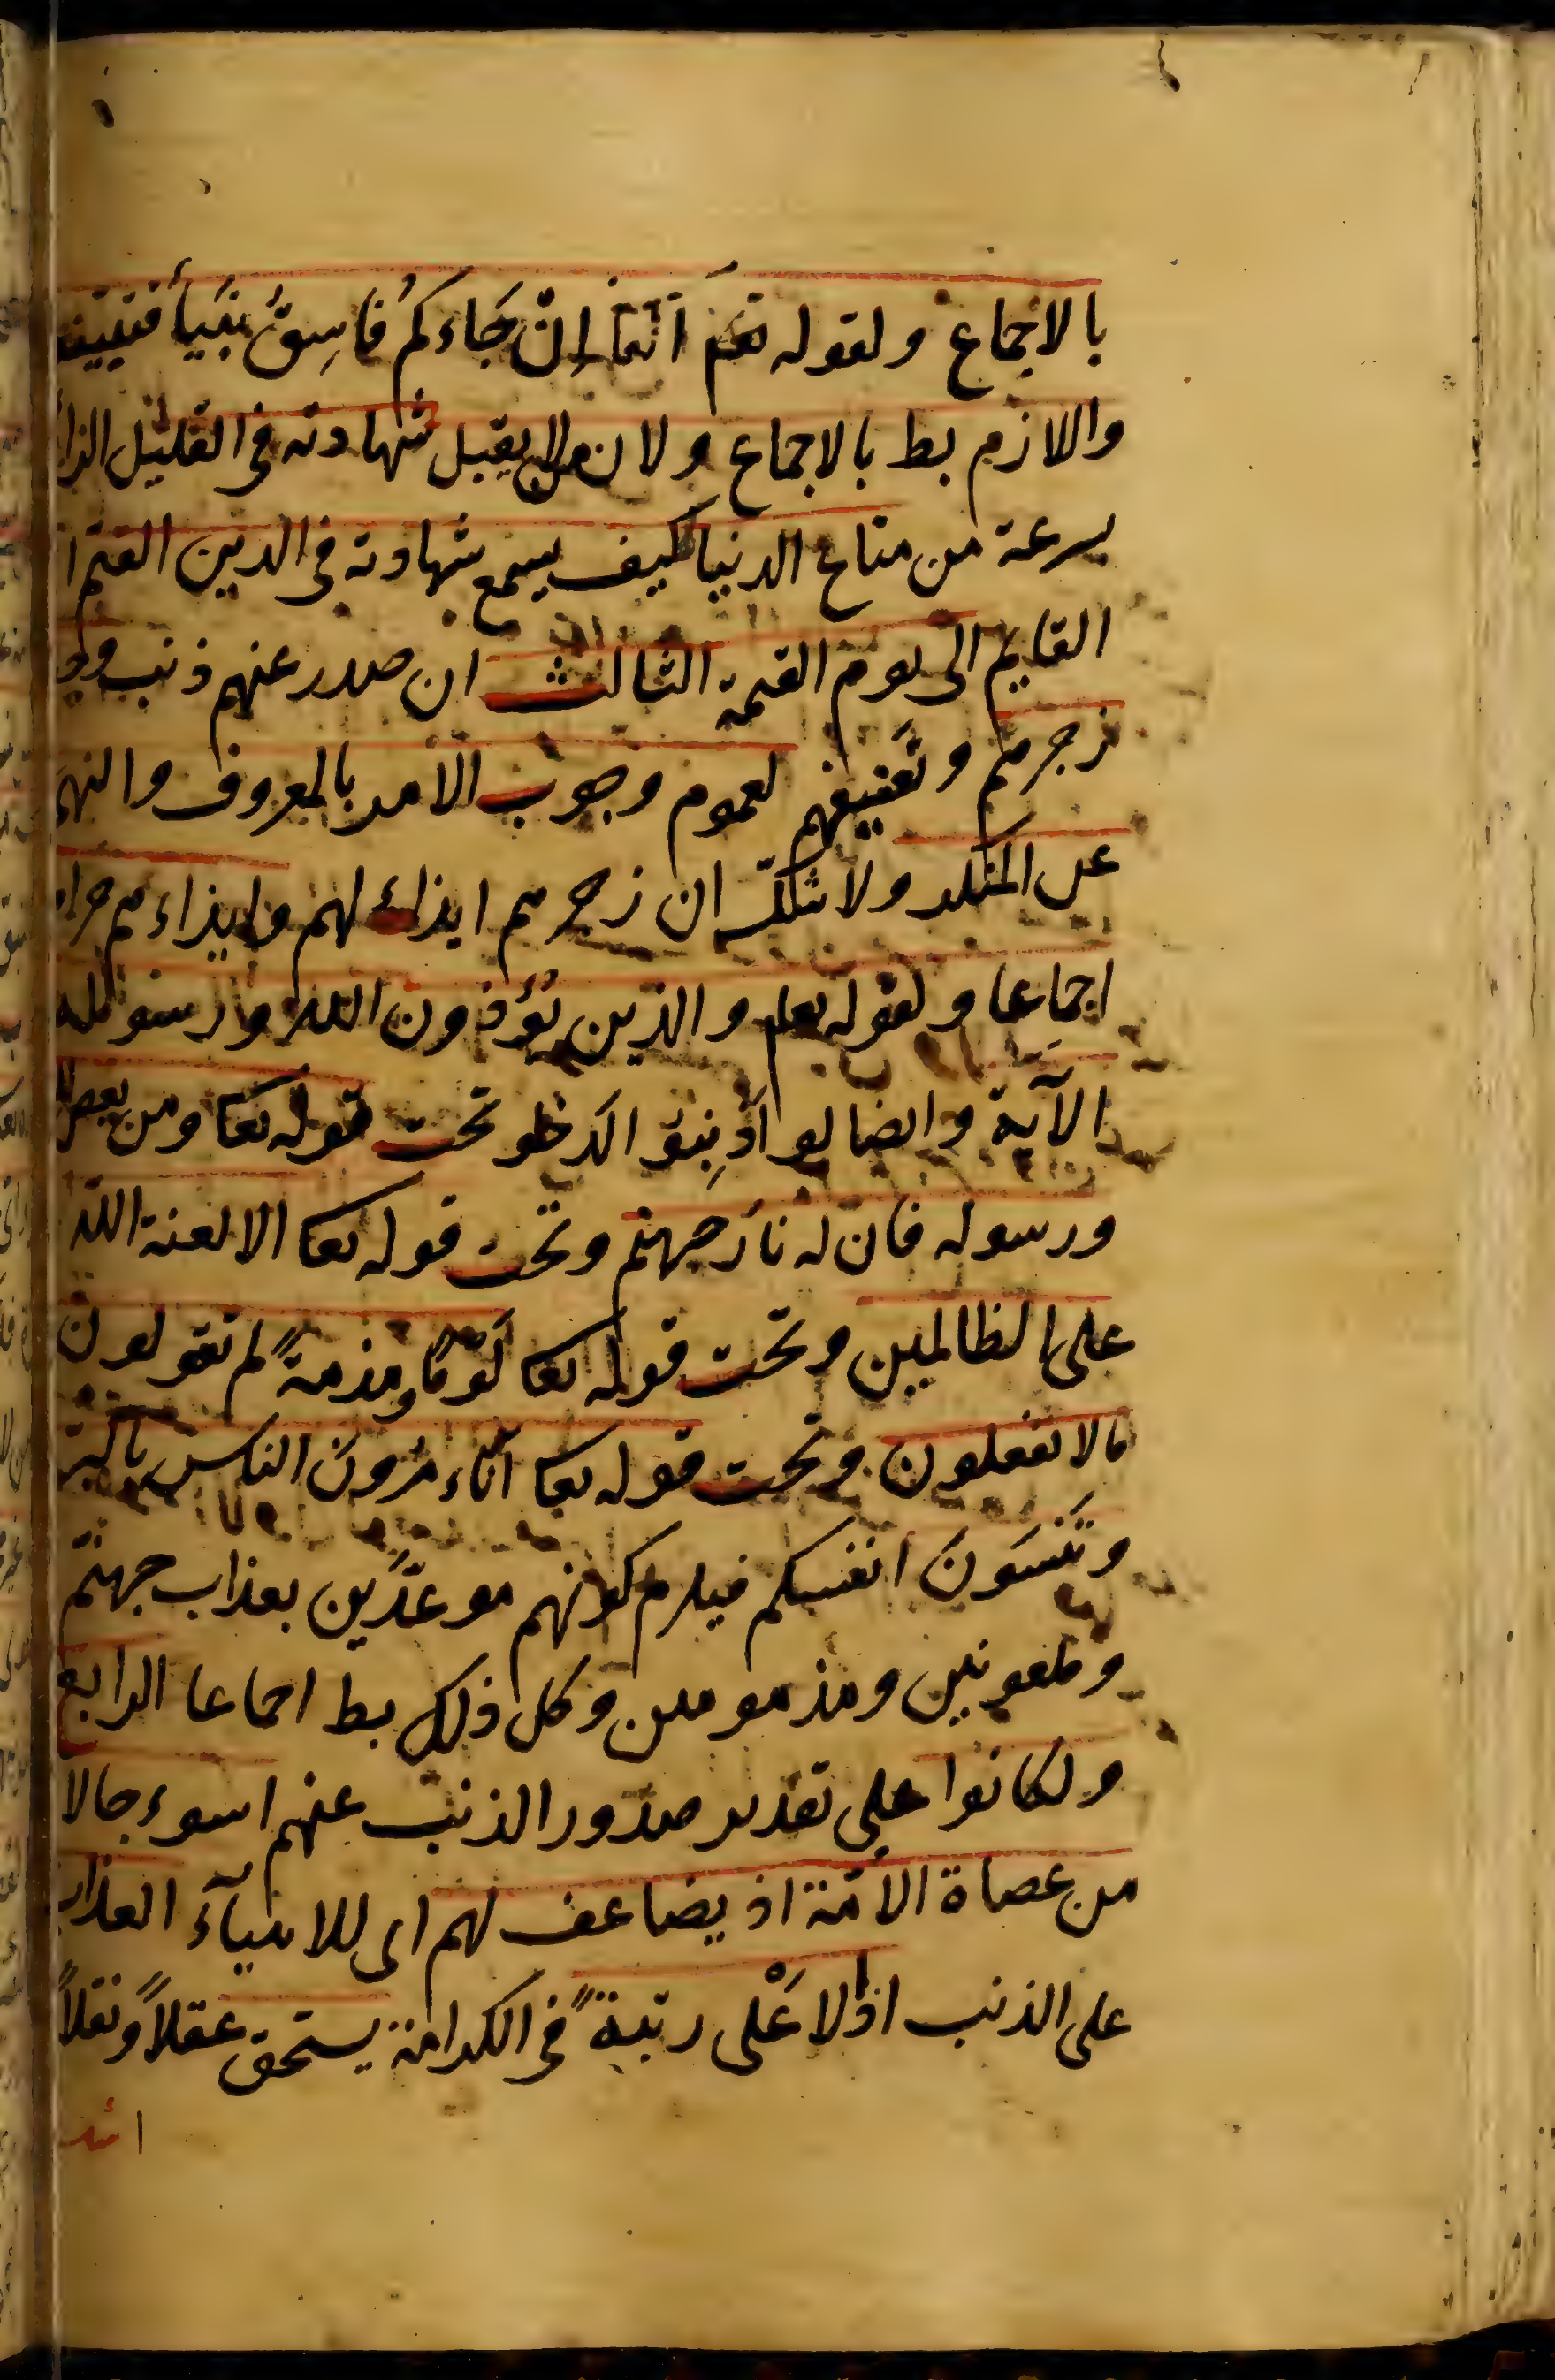 بالاجماع ولقوله تعم انما اِنْ جَاءكمُ فَاسِقٌ بنَبَأٍ فتبينوا
واللازم بط بالاجماع ولان من لا يقبل شهادته فى القليل الزائل
بسرعة من متاع الدنيا كيف يسمع شهادته فى الدين القيم
القايم الى يوم القيمة الثالث ان صدر عنهم ذنب وجب
زجرهم وتعنيفهم لعموم وجوب الامر بالمعروف والنهى
عن المنكر ولا شكّ ان زجرهم ايذاء لهم وايذاءهم حرام
اجماعا ولقوله تعا والذين يؤذون اللّه ورسوله
الآية وايضا لو اذنبوا لدخلو تحت قوله تعا ومن يعص الله
ورسوله فان له نارَ جهنم وتحت قوله تعا الا لعنة اللّه
على الظالمين وتحت قوله تعا لَوْمًا ومذمةً لم تقولون
مالا تفعلون وتحت قوله تعا أتأمرُونَ الناس بالبرّ
وتَنْسَونَ انفسكم فيلزم كونهم موعدّين بعذاب جهنّم
وملعونين ومذمومين وكل ذلك بط اجماعا الرابع
ولكانوا على تقدير صدور الذنب عنهم اسوء حالا
من عصاة الامّة اذ يضاعف لهم اى للانبيآء العذاب
على الذنب اذ الاعْلى رتبةً فى الكرامة يستحق عقلاً ونقلاً
اشد